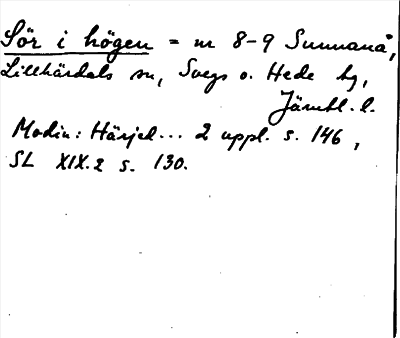 Sör i högen = nr 8-9 Sunnanå,
Lillhärdals sn, Svegs o. Hede hg,
Jämtl. l.
Modin: Härjed... 2 uppl. s. 146,
SL XIX.2 s. 130.